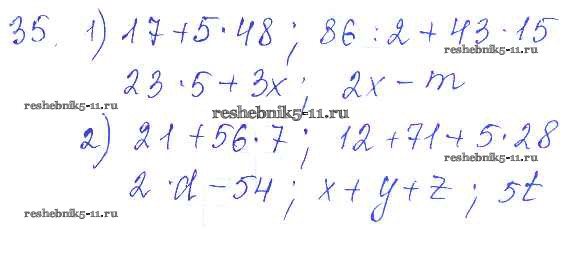 35. 1) 17+5·48; 86:2+43·15
reshebnik5-11.ru
23·5+3x; 2x-m
reshebnik5-11.ru
reshebnik5-11.ru
2) 21+56·7; 12+71+5·28
reshebnik5-11.ru
2·d-54; x+y+z; 5t
reshebnik5-11.ru